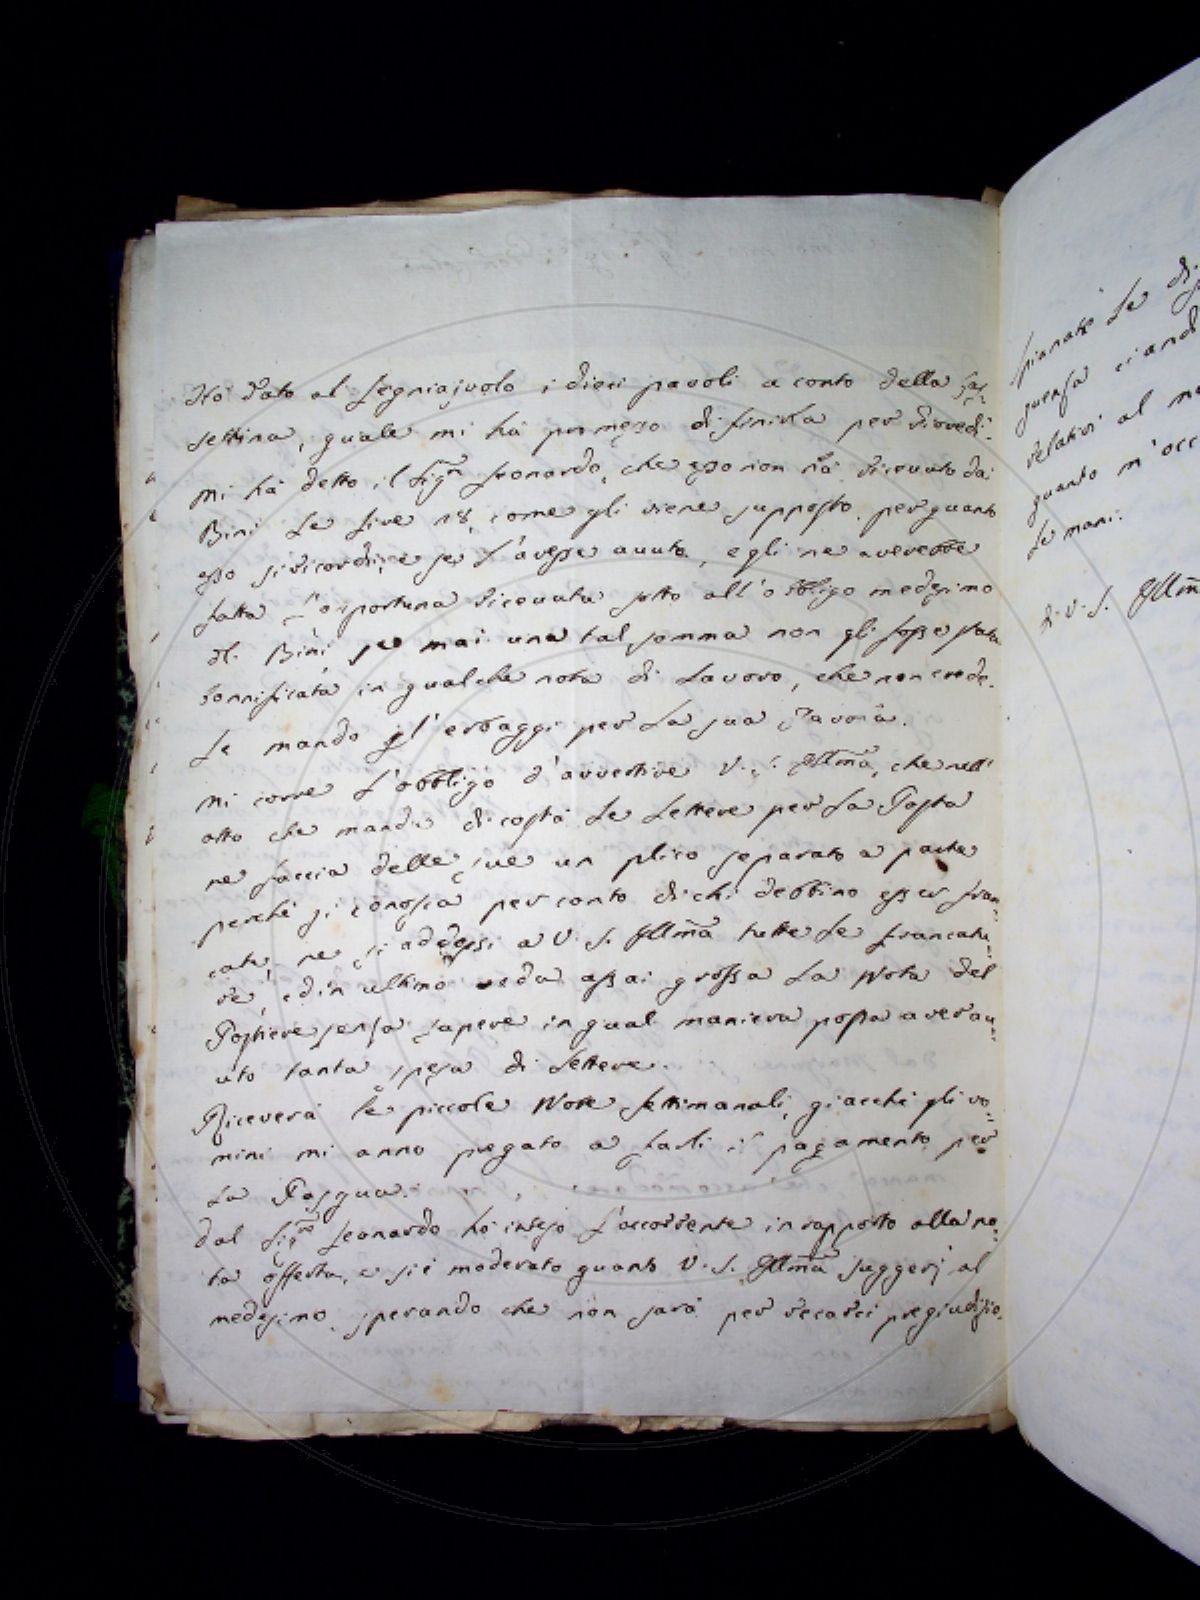 Ho dato al Legniajuolo i dieci pavoli a conto della Cas-
settina, quale mi há promesso di finirla per Giovedi.
Mi há detto il Sig.re Leonardo, che esso non há ricevuto da
Bini le Lire 18. come gli viene supposto, per quanto
esso si ricordi, e se l'avesse avute, egli ne averebbe
fatta l'oportuna ricevuta sotto all'obbligo medesimo
di Bini se mai una tal somma non gli fosse stata
bonnificata in qualche nota di Lavoro, che non crede.
Le mando gl'erbaggi per La sua Tavola.
Mi corre L'obbligo d'avvertire V. S. Illma, che nell'
atto che mandi di costá Le Lettere per La Posta
ne faccia delle sue un plico separato a parte
perché si conosca per conto di chi debbino esser fran-
cate, ne si addossi a V. S. Illma tutte Le francatu-
re, ed in ultimo veda assai grossa La Nota del
Postiere senza sapere in qual maniera possa aver av-
uto tanta spesa di Lettere.
Riceverá le piccole Note Settimanali, giacché gli vo-
mini mi anno pregato a farli il pagamento per
La Pasqua.
Dal Sig.re Leonardo hó inteso L'occorrente in rapporto alla no-
ta offerta, e si é moderato quanto V. S. Illma suggerj al
medesimo, sperando che non sará per recarci pregiudizio.
spianate Le di
guenza ci and
relativi al
quanto m'occ
Le mani.
di V. S. Illm